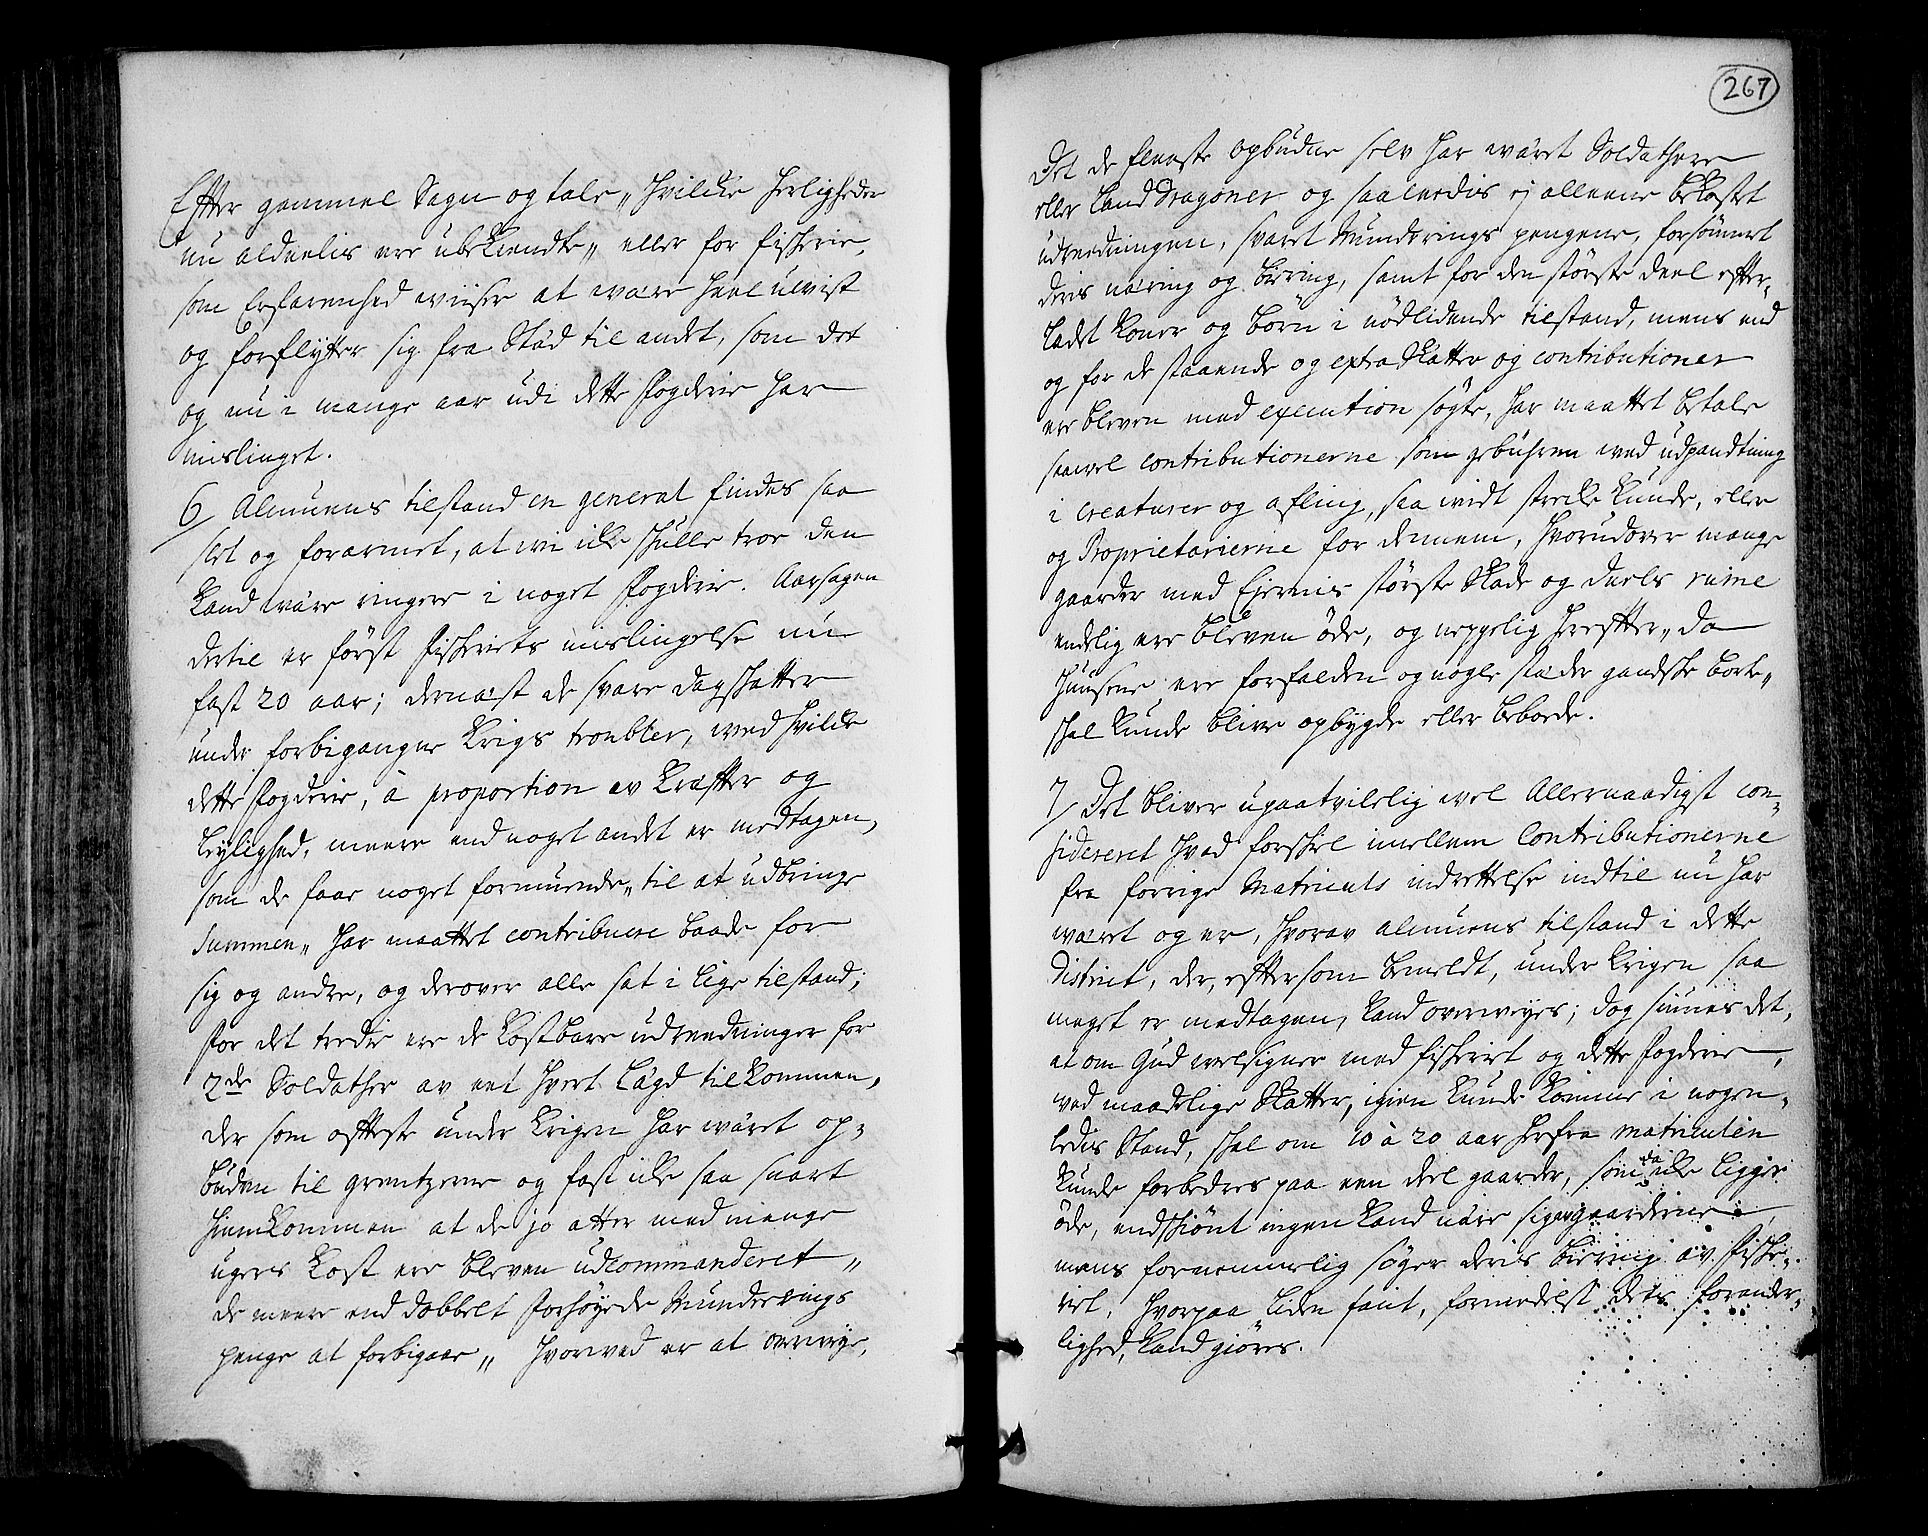 Effter gammel Sagn og tale, hvilcke herligheder
nu aldeelis ere ubekiendte, eller for fiskerie,
som Erfarenhed wiiser at være heel uvist
og forflytter sig fra Stæd til andet, som det
og nu i mange aar udi dette Fogderie har
mislinget.
6/ Almuens tilstand en general findes saa
slet og forarmet, at wi icke skulle troe den
kand være ringere i noget Fogderie. Aarsagen
dertil er først Fiskeriets mislingelse nu
fast 20 aar; dernæst de svare dagskatter
under forbigangne Krigs troubler, wed hvilcke
dette Fogderie, à proportion av kræffter og
leylighed, meere end noget andet er medtagen,
som de faae noget formuende, til at udbringe
Summen, har maattet contribuere baade for
sig og andre, og derover alle sat i lige tilstand;
For det tredie ere de kostbare udreedninger for
2de Soldather av eet hvert Lægd tilkommen,
der som offteste under Krigen har wæret op-
buden til grentzerne og fast icke saa snart
hiemkommen at de jo atter med mange
ugers kost ere bleven udcommanderet,
de meere end dobbelt forhøyede Munderings
penge at forbigaae, hvorwed er at overveye,
267
Det de fleeste opbudne selv har wæret Soldathere
eller Land Dragoner og saaleedis ej alleene bekostet
udreedningen, svaret Munderings pengene, forsømmet
deris næring og biering, samt for den største deel effter-
ladet koner og børn i nødlidende tilstand, mens end
og for de staaende og extra Skatter og contributioner
ere bleven med execution søgte, har maattet betale
saavel contributionerne som gebuhren wed udpandtning
i creaturer og afling, saa vidt strecke kunde, eller
og Proprietarierne for dennem, hvorudover mange
gaarder med Ejernis største Skade og deels ruine
endelig ere bleven øde, og neppelig hereffter, da
Huusene ere forfalden og nogle stæder gandske borte,
skal kunde blive opbygde eller beboede.
7/ Det bliver upaatvilelig wel Allernaadigst con-
sidereret hvad forskiel imellem Contributionerne
fra forrige Matriculs indrettelse indtil nu har
wæret og er, hvorav almuens tilstand i dette
District, der, effter som bemeldt, under Krigen saa
meget er medtagen, kand overveyes; dog siunes det,
at om Gud welsigner med fiskeriet og dette Fogderie,
ved maadelige Skatter, igien kunde komme i nogen-
ledis Stand, skal om 10 à 20 aar herfra matriculen
kunde forbedres paa een deel gaarder, som da icke ligger
øde, endskiønt ingen kand nære sig av gaarderne,
mens fornemmelig søger deris biering av Fiske-
riet, hvorpaa liden facit, formedelst dets forander-
lighed, kand giøres.